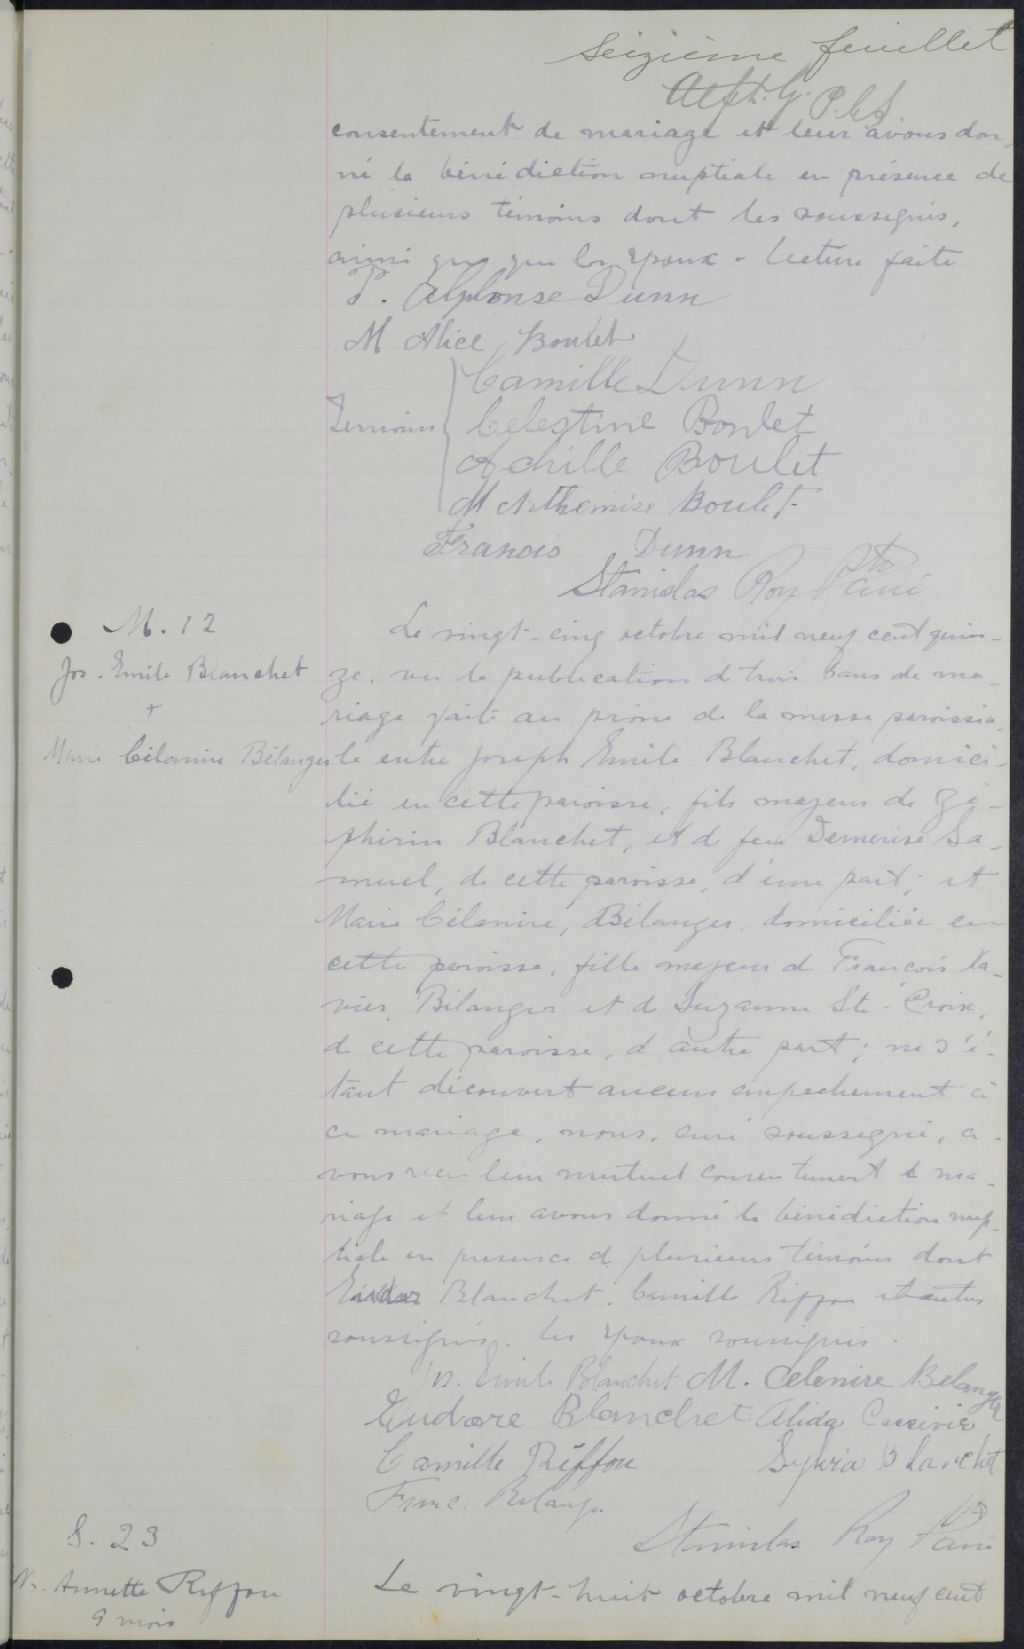 Seizième feuillet
Alph. G. P.C.S.
consentement de mariage et leur avons don-
né la bénédiction nuptiale en présence de
plusieurs témoins dont les soussignés,
ainsi que les époux - Lecture faite
P. Alphonse Dunn
M Alice Boulet
Camille Dunn
Témoins Celestine Boulet
Achille Boulet
M Arthemise Boulet
Francis Dunn
Stanislas Roy Ptre Curé
M. 12
Jos. Emile Blanchet
+
Marie Célanire Bélanger
Le vingt-cinq octobre mil neuf cent quin-
ze, vu la publication de trois bans de ma-
riage faite au prône de la messe paroissia-
le entre Joseph Emile Blanchet, domici-
lié en cette paroisse, fils majeur de Zé-
phirin Blanchet, et d feu Demerise Sa-
muel, de cette paroisse, d'une part; et
Marie Célanire, Bélanger, domiciliée en
cette paroisse, fille majeur d François Xa-
vier Bélanger et d Suzanne Ste-Croix,
de cette paroisse, d'autre part; ne s'é-
tant découvert aucun empechement à
ce mariage, nous, curé soussigné, a-
vons reçu leur mutuel consentement d ma-
riage et leur avons donné la bénédiction nup-
tiale en presence d plusieurs témoins dont
Blanchet, Camille Riffou et autres
soussignés. Les époux soussignés.
Jos. Emile Blanchet M. Celenire Belanger
Eudore Blanchet Alida
Camille Riffou Blanchet
Franc. Belanger
Stanislas Roy Ptre Curé
S. 23
Annette Riffou
9 mois
Le vingt-huit octobre mil neuf cent